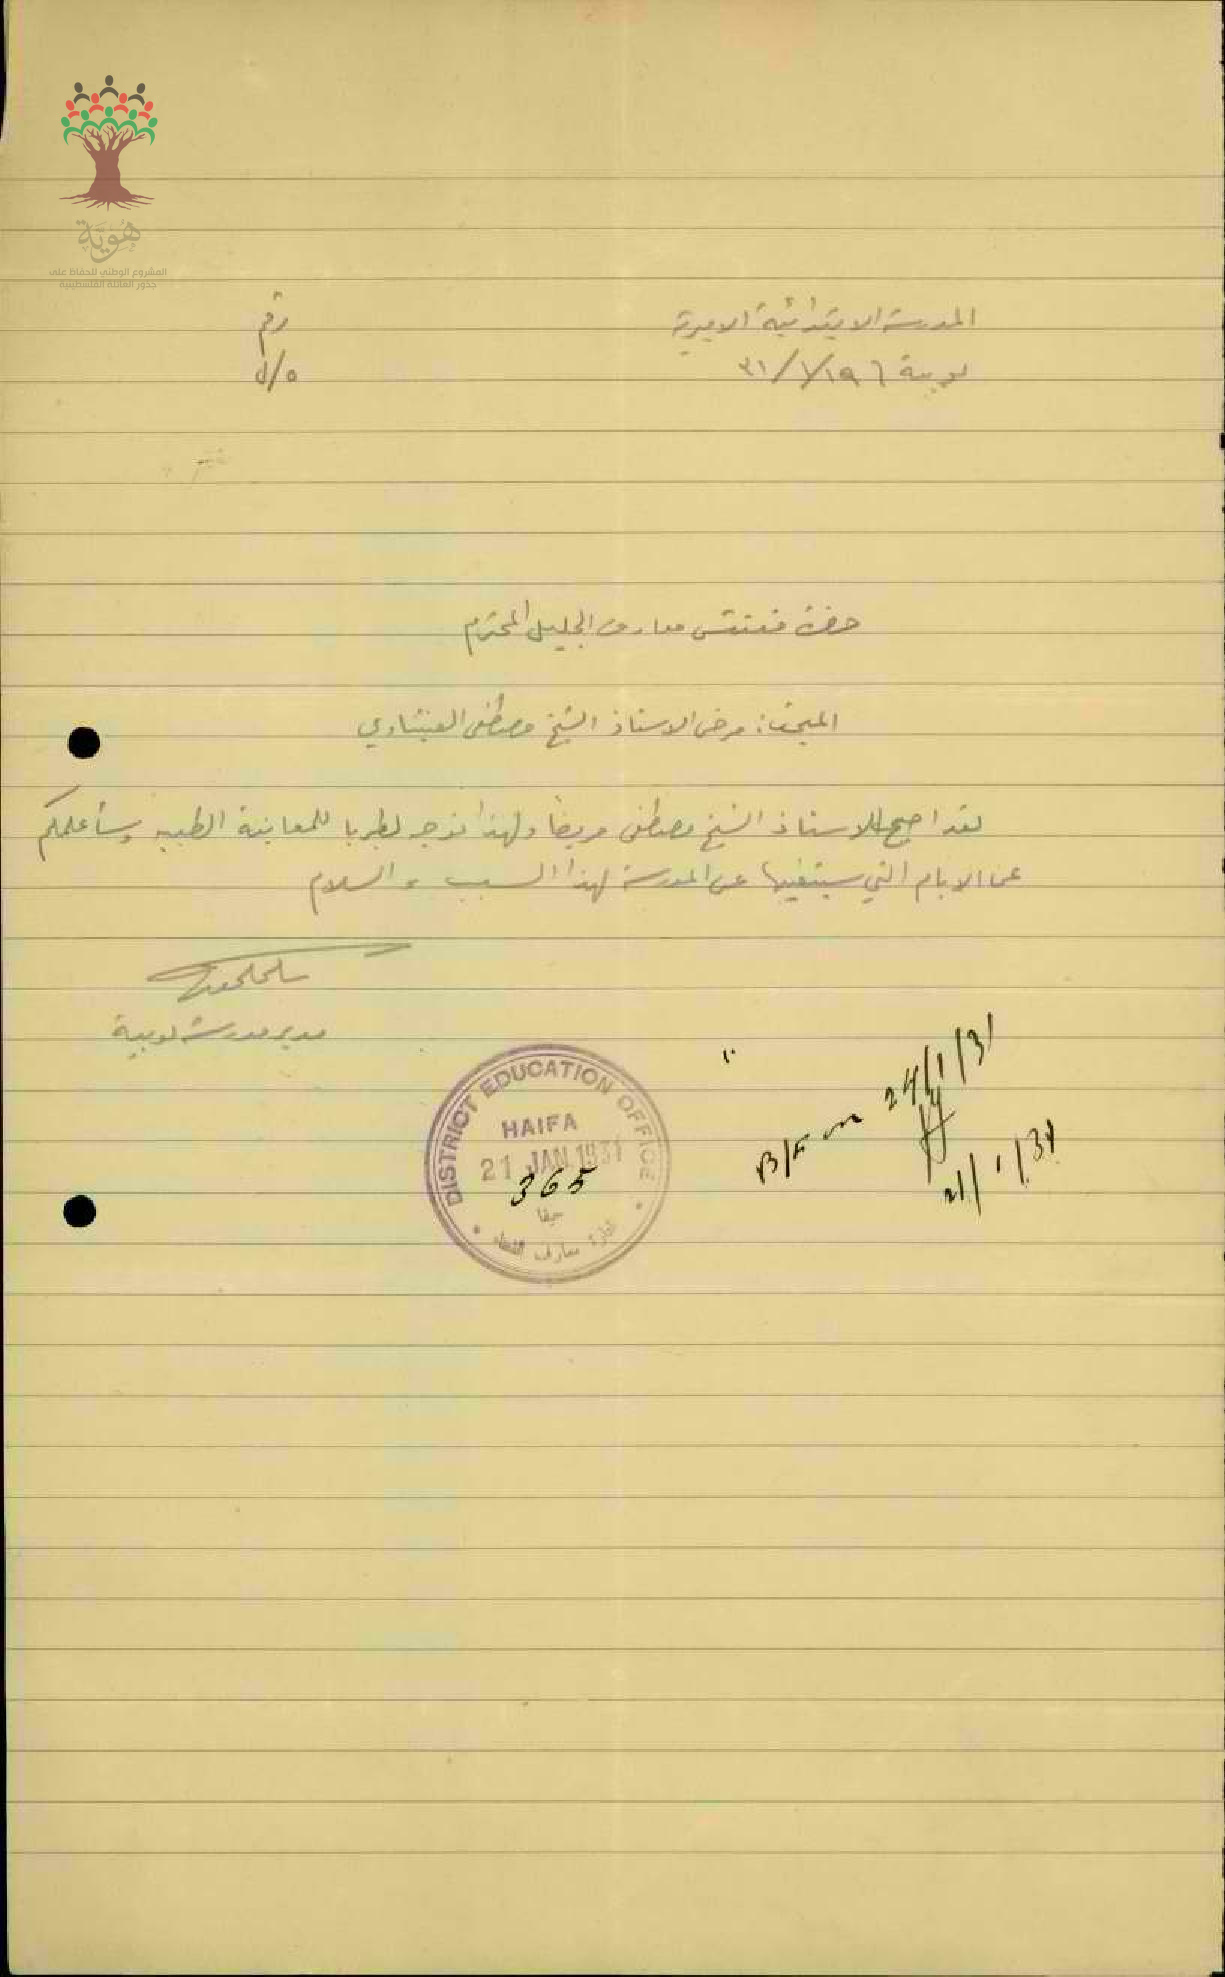 هُوِيَّة
المشروع الوطني للحفاظ على
جذور العائلة الفلسطينية
المدرسة الابتدائية الاميرية
رقم
لوبية
٥/ل
حضرة مفتش معارف الجليل المحترم
المبحث: مرض الاستاذ الشيخ مصطفى
لقد اصبح الاستاذ الشيخ مصطفى مريضا ولهذا توجه لطبريا للمعاينة الطبية وسأعلمكم
عن الايام التي سيتغيبها عن المدرسة لهذا السبب والسلام
مدير مدرسة لوبية
DISTRICT EDUCATION OFFICE
HAIFA
21 JAN 1931
365
حيفا
ادارة معارف القضاء
B/F on 24/1/31
21/1/31